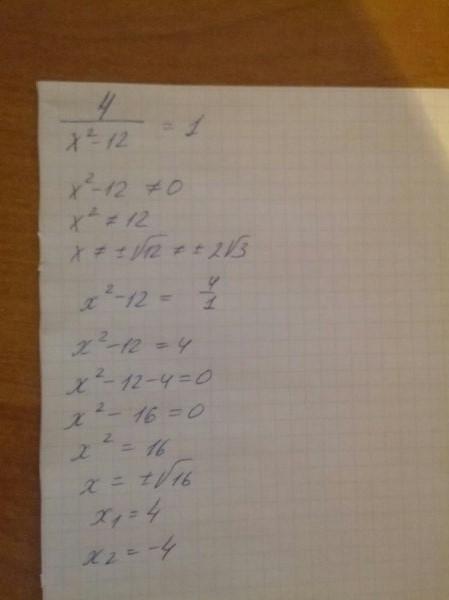 4/(x²-12) = 1
x²-12 ≠ 0
x² ≠ 12
x ≠ ±√12 ≠ ±2√3
x²-12 = 4/1
x²-12 = 4
x²-12-4=0
x²-16=0
x² = 16
x = ±√16
x₁ = 4
x₂ = -4